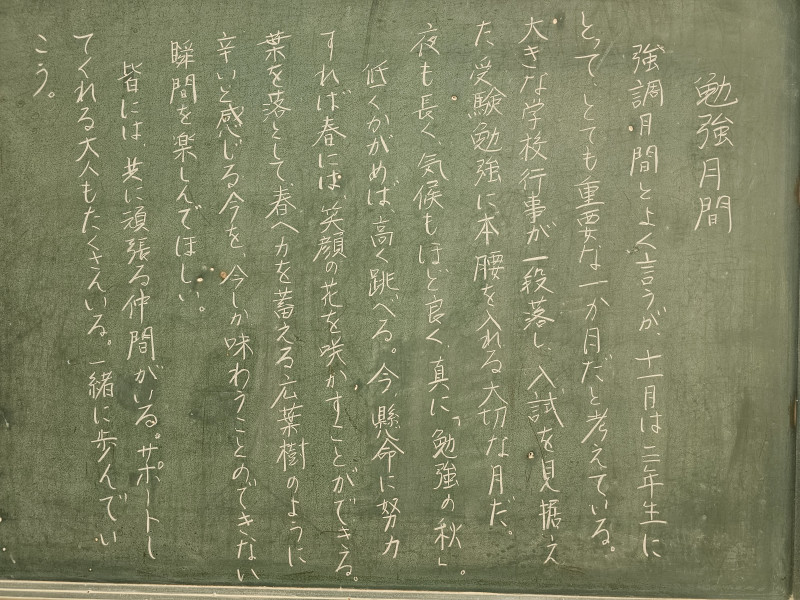 勉強月間
強調月間とよく言うが、十一月は三年生に
とって、とても重要な一か月だと考えている。
大きな学校行事が一段落し、入試を見据え
た受験勉強に本腰を入れる大切な月だ。
夜も長く、気候もほど良く、真に「勉強の秋」。
低くかがめば、高く跳べる。今、懸命に努力
すれば春には、笑顔の花を咲かすことができる。
葉を落として春へ力を蓄える広葉樹のように
辛いと感じる今を、今しか味わうことのできない
瞬間を楽しんでほしい。
皆には、共に頑張る仲間がいる。サポートし
てくれる大人もたくさんいる。一緒に歩んでい
こう。